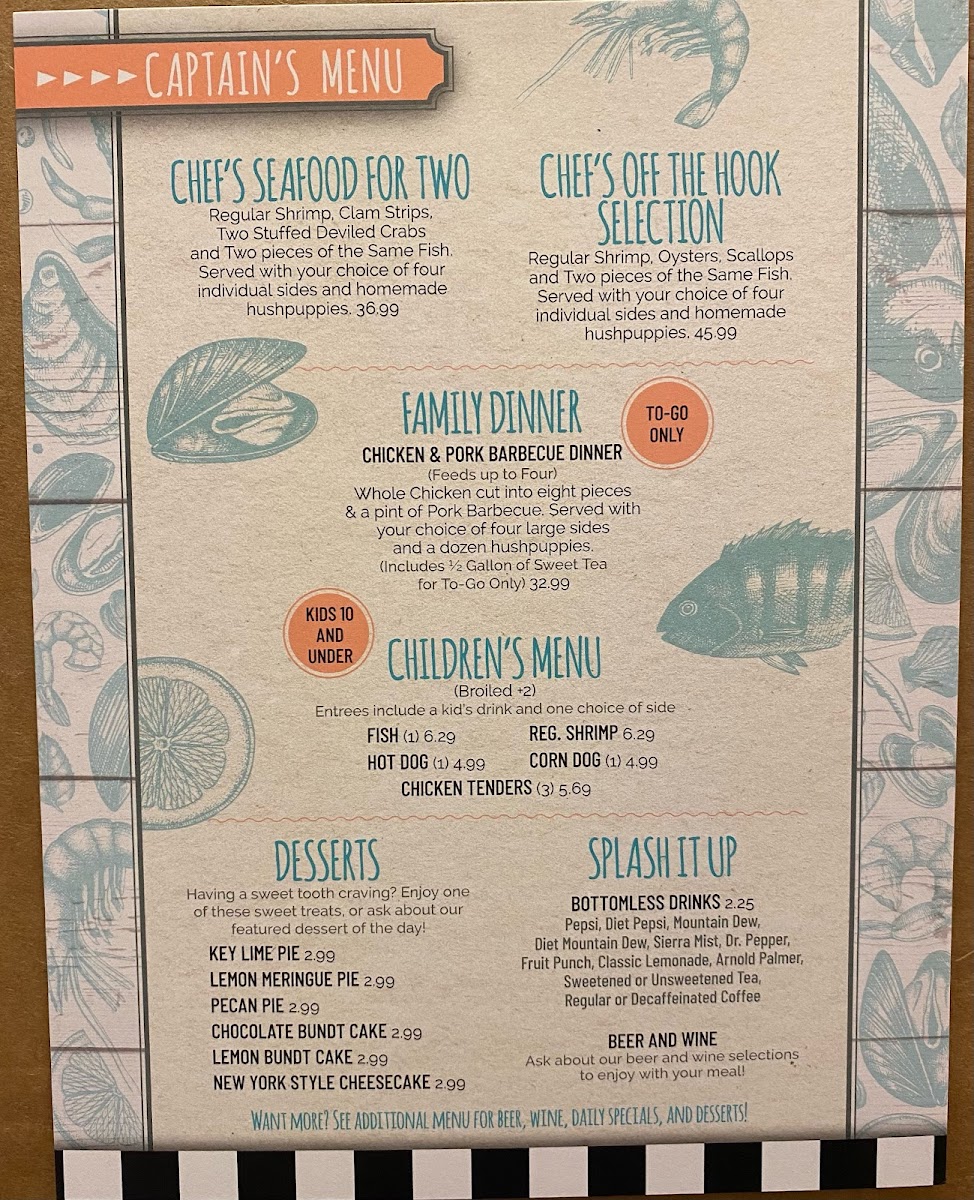 CAPTAIN'S MENU
CHEF'S SEAFOOD FOR TWO
Regular Shrimp, Clam Strips,
Two Stuffed Deviled Crabs
and Two pieces of the Same Fish.
Served with your choice of four
individual sides and homemade
hushpuppies. 36.99
CHEF'S OFF THE HOOK
SELECTION
Regular Shrimp, Oysters, Scallops
and Two pieces of the Same Fish.
Served with your choice of four
individual sides and homemade
hushpuppies. 45.99
FAMILY DINNER
TO-GO
ONLY
CHICKEN & PORK BARBECUE DINNER
(Feeds up to Four)
Whole Chicken cut into eight pieces
& a pint of Pork Barbecue. Served with
your choice of four large sides
and a dozen hushpuppies.
(Includes ½ Gallon of Sweet Tea
for To-Go Only) 32.99
KIDS 10
AND
UNDER
CHILDREN'S MENU
(Broiled +2)
Entrees include a kid's drink and one choice of side
FISH (1) 6.29
REG. SHRIMP 6.29
HOT DOG (1) 4.99
CORN DOG (1) 4.99
CHICKEN TENDERS (3) 5.69
DESSERTS
Having a sweet tooth craving? Enjoy one
of these sweet treats, or ask about our
featured dessert of the day!
KEY LIME PIE 2.99
LEMON MERINGUE PIE 2.99
PECAN PIE 2.99
CHOCOLATE BUNDT CAKE 2.99
LEMON BUNDT CAKE 2.99
NEW YORK STYLE CHEESECAKE 2.99
SPLASH IT UP
BOTTOMLESS DRINKS 2.25
Pepsi, Diet Pepsi, Mountain Dew,
Diet Mountain Dew, Sierra Mist, Dr. Pepper,
Fruit Punch, Classic Lemonade, Arnold Palmer,
Sweetened or Unsweetened Tea,
Regular or Decaffeinated Coffee
BEER AND WINE
Ask about our beer and wine selections
to enjoy with your meal!
WANT MORE? SEE ADDITIONAL MENU FOR BEER, WINE, DAILY SPECIALS, AND DESSERTS!